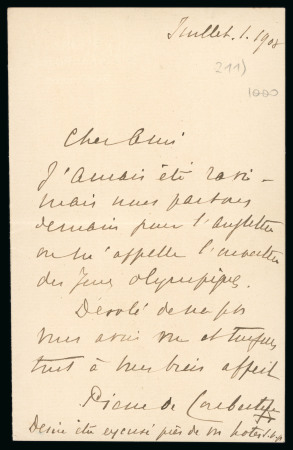 Juillet. 1. 1908
211)
1000
Cher Ami
J'aurais été ravi –
mais nous partons
demain pour l'Angleterre
où m'appelle l'ouverture
des Jeux Olympiques.
Désolé de ne pas
vous avoir vu et
tout à vous bien affect
Pierre de Coubertin
être excusé près de vos